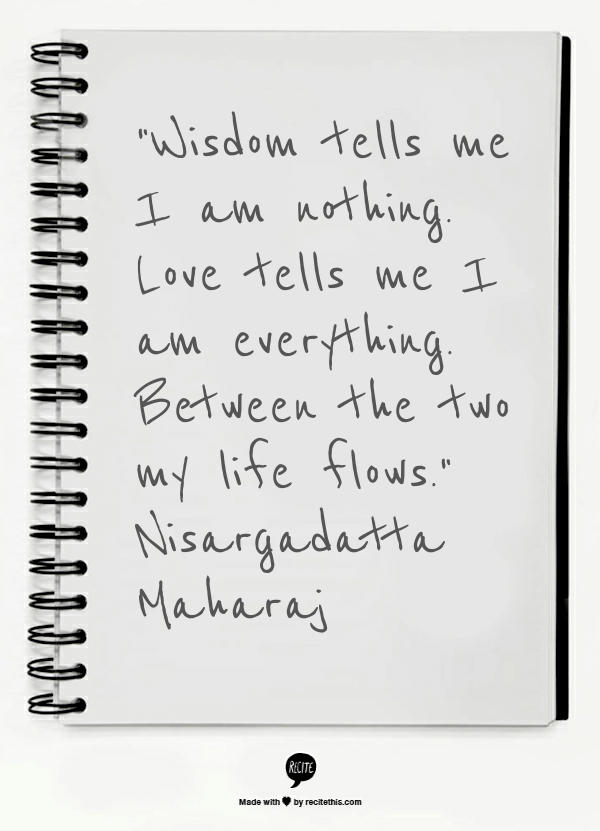 "Wisdom tells me
I am nothing.
Love tells me I
am everything.
Between the two
my life flows."
Nisargadatta
Maharaj
RECITE
Made with ♥ by recitethis.com